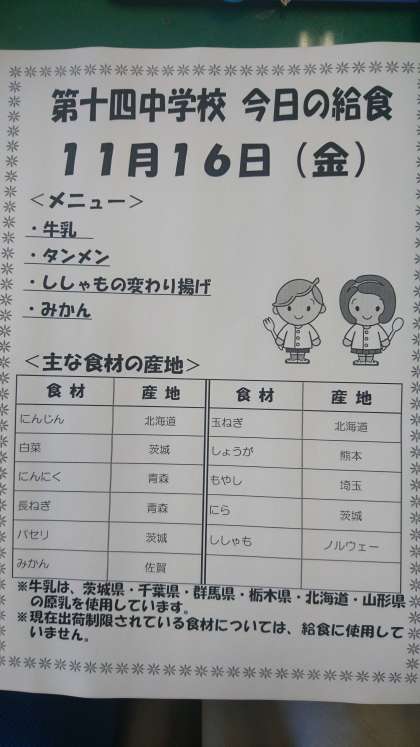 第十四中学校 今日の給食
11月16日（金）
＜メニュー＞
・牛乳
・タンメン
・ししゃもの変わり揚げ
・みかん
＜主な食材の産地＞
食材 産地 食材 産地
にんじん 北海道 玉ねぎ 北海道
白菜 茨城 しょうが 熊本
にんにく 青森 もやし 埼玉
長ねぎ 青森 にら 茨城
パセリ 茨城 ししゃも ノルウェー
みかん 佐賀
※牛乳は、茨城県・千葉県・群馬県・栃木県・北海道・山形県
の原乳を使用しています。
※現在出荷制限されている食材については、給食に使用して
いません。